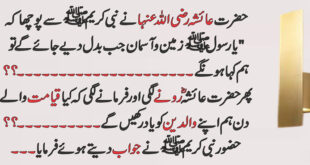 حضرت عائشہ رضی اللہ عنہا نے نبی کریم ﷺ سے پوچھا کہ
"یارسول ﷺ زمین و آسمان جب بدل دیے جائے گے تو
ہم کہا ہونگے ـ ـ ـ ـ ـ ـ ـ ـ ـ ـ ـ ـ ـ ـ ـ ـ ـ ـ ـ ؟؟
پھر حضرت عائشہؓ رونے لگی اور فرمانے لگی کہ کیا قیامت والے
دن ہم اپنے والدین کو یاد رکھیں گے ـ ـ ـ ـ ـ ـ ـ ـ ـ ـ ـ ؟؟
حضور نبی کریم ﷺ نے جواب دیتے ہوئے فرمایا ـ ـ ـ